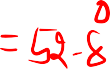 = 52-8⁰